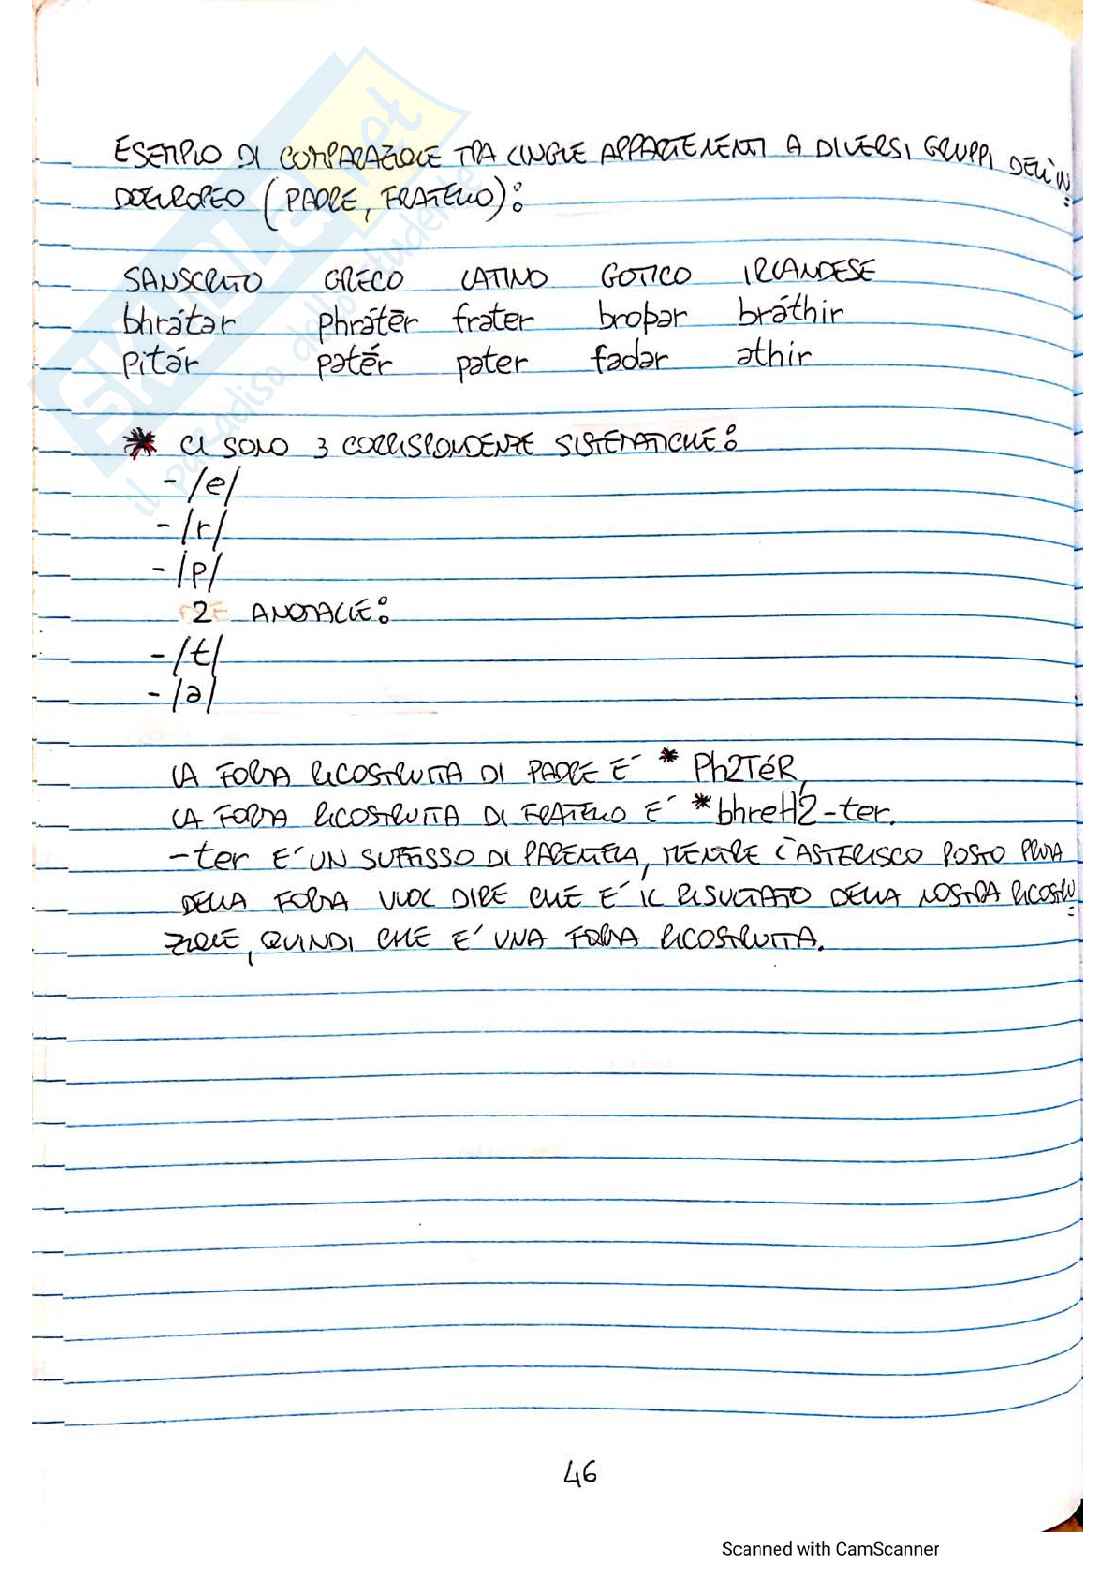 SKUOLA.net
il paradiso dello studente
ESEMPIO DI COMPARAZIONE TRA LINGUE APPARTENENTI A DIVERSI GRUPPI DELL'IN=
DOEUROPEO (PADRE, FRATELLO):
SANSCRITO GRECO LATINO GOTICO IRLANDESE
bhrátar phrátēr frater broþar bráthir
pitár patḗr pater fadar athir
* CI SONO 3 CORRISPONDENZE SISTEMATICHE:
- /e/
- /r/
- /p/
2 ANOMALIE:
- /t/
- /a/
LA FORMA RICOSTRUITA DI PADRE E' * Ph2TéR,
LA FORMA RICOSTRUITA DI FRATELLO E' *bhreH2-ter.
-ter E' UN SUFFISSO DI PARENTELA, MENTRE L'ASTERISCO POSTO PRIMA
DELLA FORMA VUOL DIRE CHE E' IL RISULTATO DELLA NOSTRA RICOSTRU=
ZIONE, QUINDI CHE E' UNA FORMA RICOSTRUITA.
46
Scanned with CamScanner